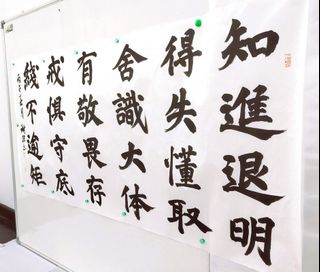 知進退明
得失懂取
舍識大体
有敬畏存
戒惧守底
綫不逾矩